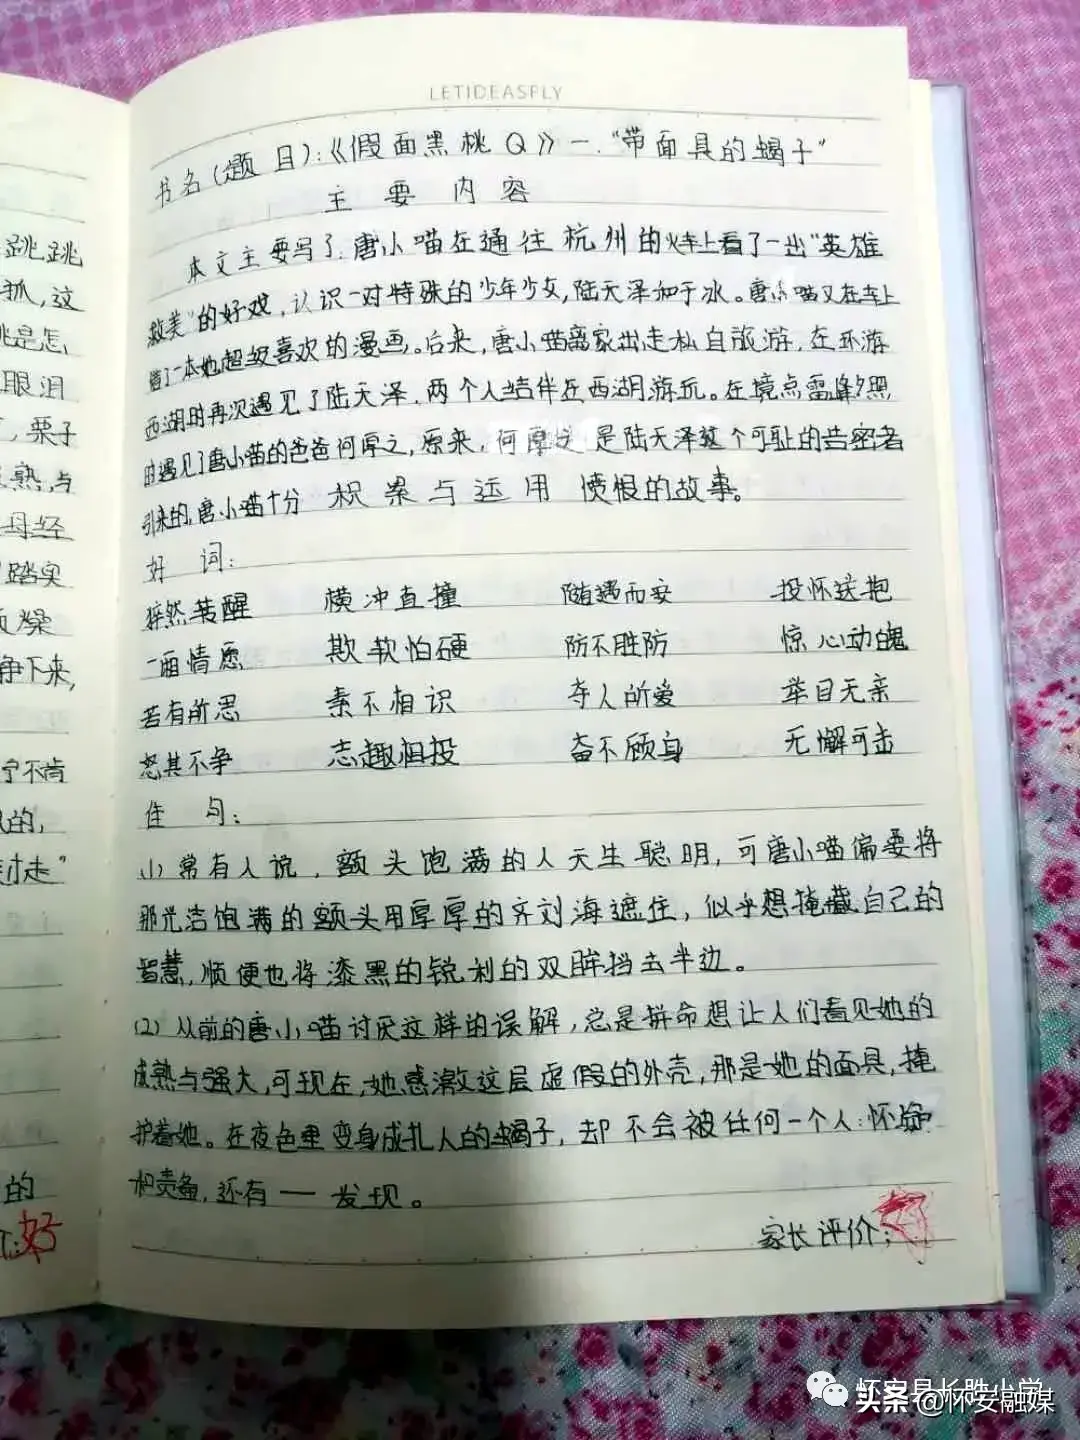 LETIDEASFLY
书名(题目):《假面黑桃Q》一."带面具的蝎子"
主要内容
本文主要写了:唐小喵在通往杭州的火车上看了一出"英雄
救美"的好戏,认识一对特殊的少年少女,陆天泽和于冰。唐小喵又在车上
看了一本她超级喜欢的漫画。后来,唐小喵离家出走私自旅游,在环游
西湖时再次遇见了陆天泽,两个人结伴在西湖游玩。在境点雷峰夕照
时遇见了唐小喵的爸爸何厚之,原来,何厚之是陆天泽这个可耻的告密者
引来的,唐小喵十分 积累与运用 愤恨的故事。
好词:
猝然装醒 横冲直撞 随遇而安 投怀送抱
一厢情愿 欺软怕硬 防不胜防 惊心动魄
若有所思 素不相识 夺人所爱 举目无亲
怒其不争 志趣相投 奋不顾身 无懈可击
佳句:
(1)常有人说,额头饱满的人天生聪明,可唐小喵偏要将
那光洁饱满的额头用厚厚的齐刘海遮住,似乎想掩藏自己的
智慧,顺便也将漆黑的锐利的双眸挡去半边。
(2)从前的唐小喵讨厌这样的误解,总是拼命想让人们看见她的
成熟与强大,可现在,她感激这层虚假的外壳,那是她的面具,掩
护着她。在夜色里变身成扎人的蝎子,却不会被任何一个人:怀疑
和责备,还有——发现。
家长评价:
跳跳
狐,这
是怎
眼泪
,栗子
熟,与
母经
踏实
燥
争下来,
宁不肯
的,
过走"
的
:好
怀安县长胜小学
头条@怀安融媒